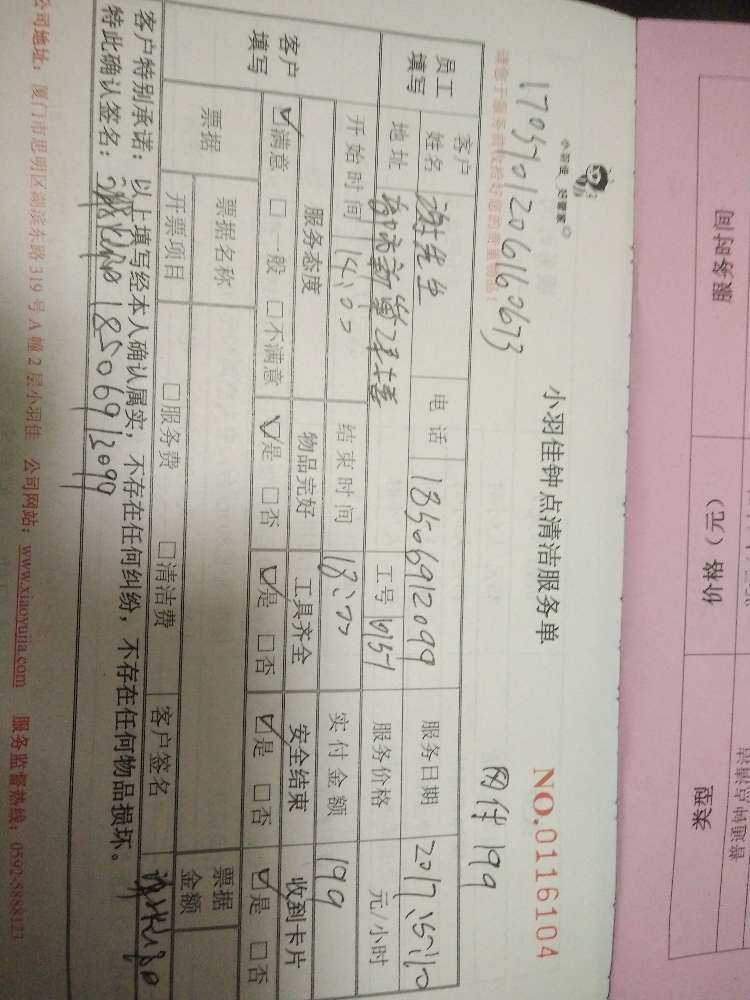 小羽佳 好管家
小羽佳钟点清洁服务单
NO.0116104
1705401206160673
网付199
员工填写
客户姓名
谢先生
电话
18506912099
服务日期
2017.5.10
地址
工号
服务价格
元/小时
开始时间
14:00
结束时间
18:00
实付金额
199
客户填写
服务态度
物品完好
工具齐全
安全结束
收到卡片
☑满意 □一般 □不满意
☑是 □否
☑是 □否
☑是 □否
☑是 □否
票据
票据名称
票据金额
开票项目
□服务费
□清洁费
客户签名
客户特别承诺：以上填写经本人确认属实，不存在任何纠纷，不存在任何物品损坏。
特此确认签名：
18506912099
公司地址：厦门市思明区湖滨东路319号A幢2层小羽佳 公司网站：www.xiaoyujia.com 服务监督热线：0592-5888123
服务时间
价格（元）
类型